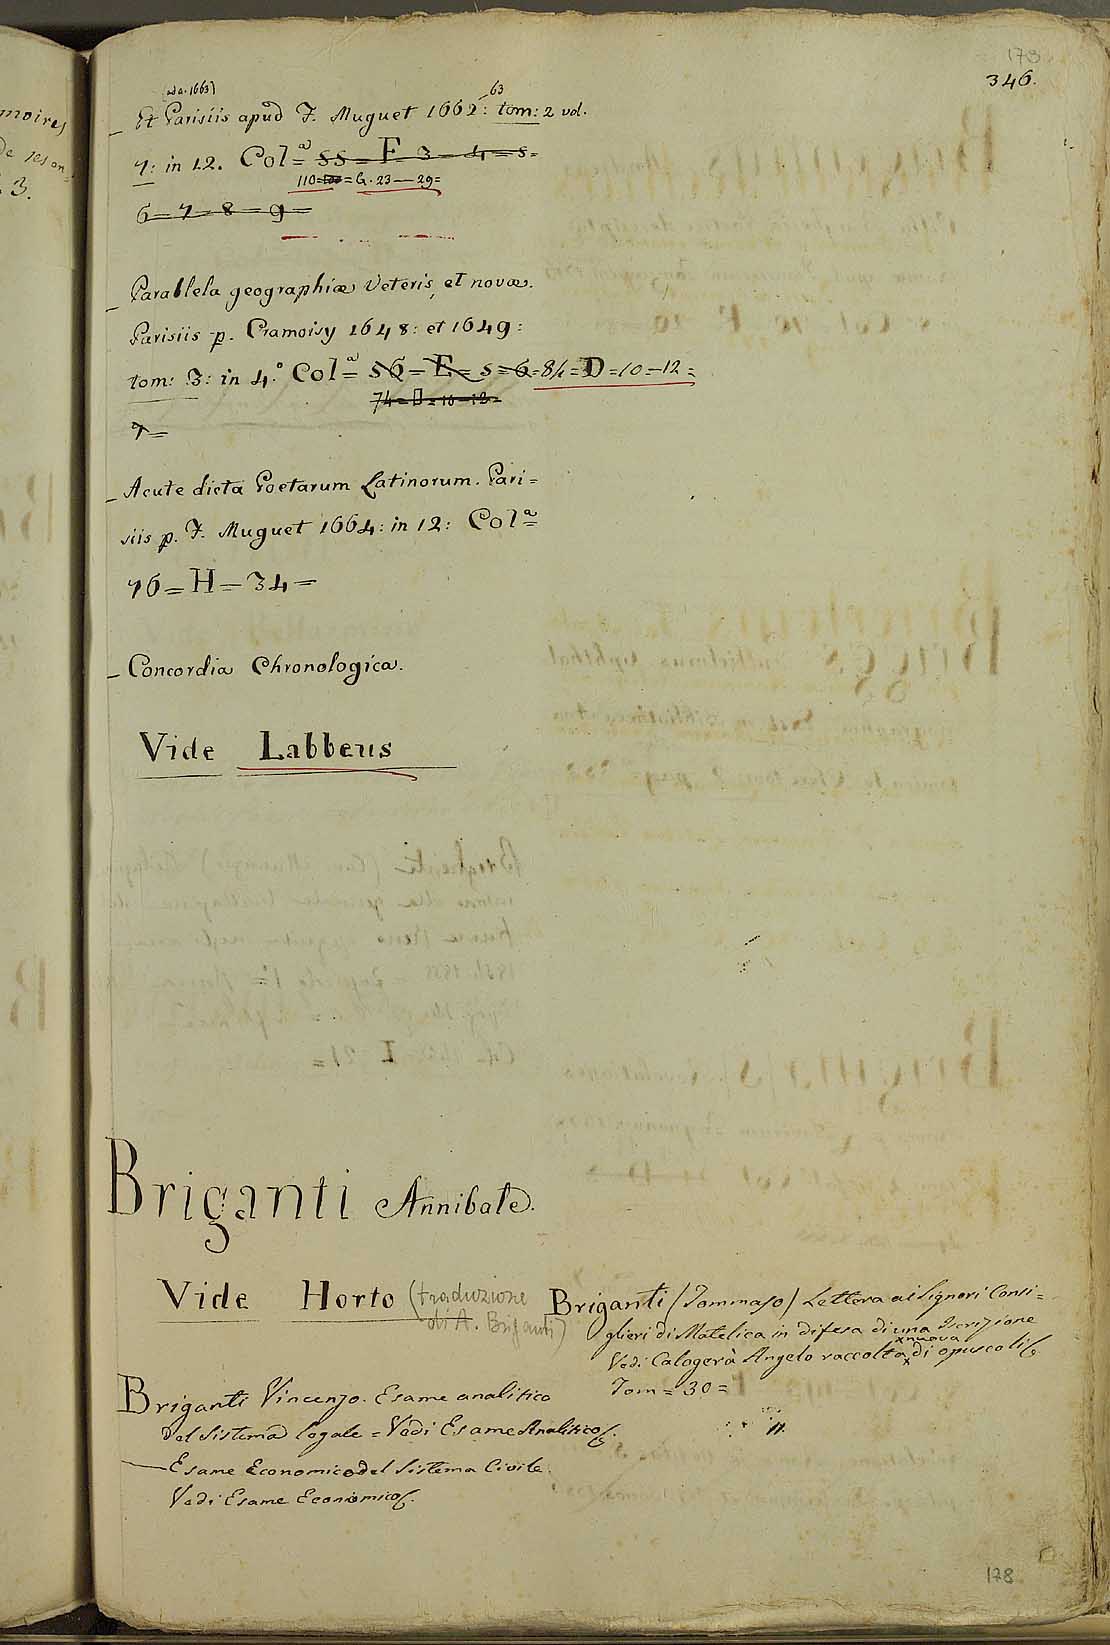 173
346.
(ad a. 1663)
Et Parisiis apud F. Muguet 1662: 63 tom: 2 vol.
7: in 12. Col.ª= SS=F=3=4=5=
110= =G.23—29=
6=7=8=9=
Parallela geographiæ Veteris, et novæ.
Parisiis p. Cramoisy 1648: et 1649:
tom: 3: in 4.º Col.ª= 56=E=5=6=84=D=10=12=
74=D=10=12=
7=
Acute dicta Poetarum Latinorum. Pari=
siis p. F. Muguet 1664: in 12: Col.ª=
76=H=34=
Concordia Chronologica.
Vide Labbeus
Briganti Annibale.
Vide Horto (traduzione
di A. Briganti)
Briganti (Tommaso) Lettera ai Signori Consi=
glieri di Matelica in difesa di una Iscrizione
x nuova
Vedi Calogerà Angelo raccolta x di opuscoli
Tom=30=
Briganti Vincenzo. Esame analitico
del Sistema legale = Vedi Esame Analitico
— Esame Economico del Sistema Civile.
Vedi Esame Economico
178
moires
3.